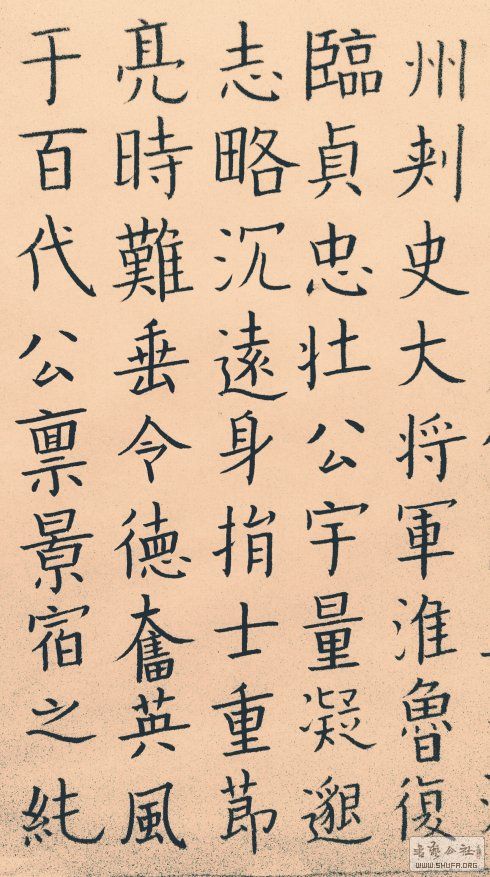 州刾史大将軍淮魯復
臨貞忠壮公宇量凝邈
志略沉遠身捐士重莭
亮時難垂令德奮英風
于百代公禀景宿之純
WWW.SHUFA.ORG